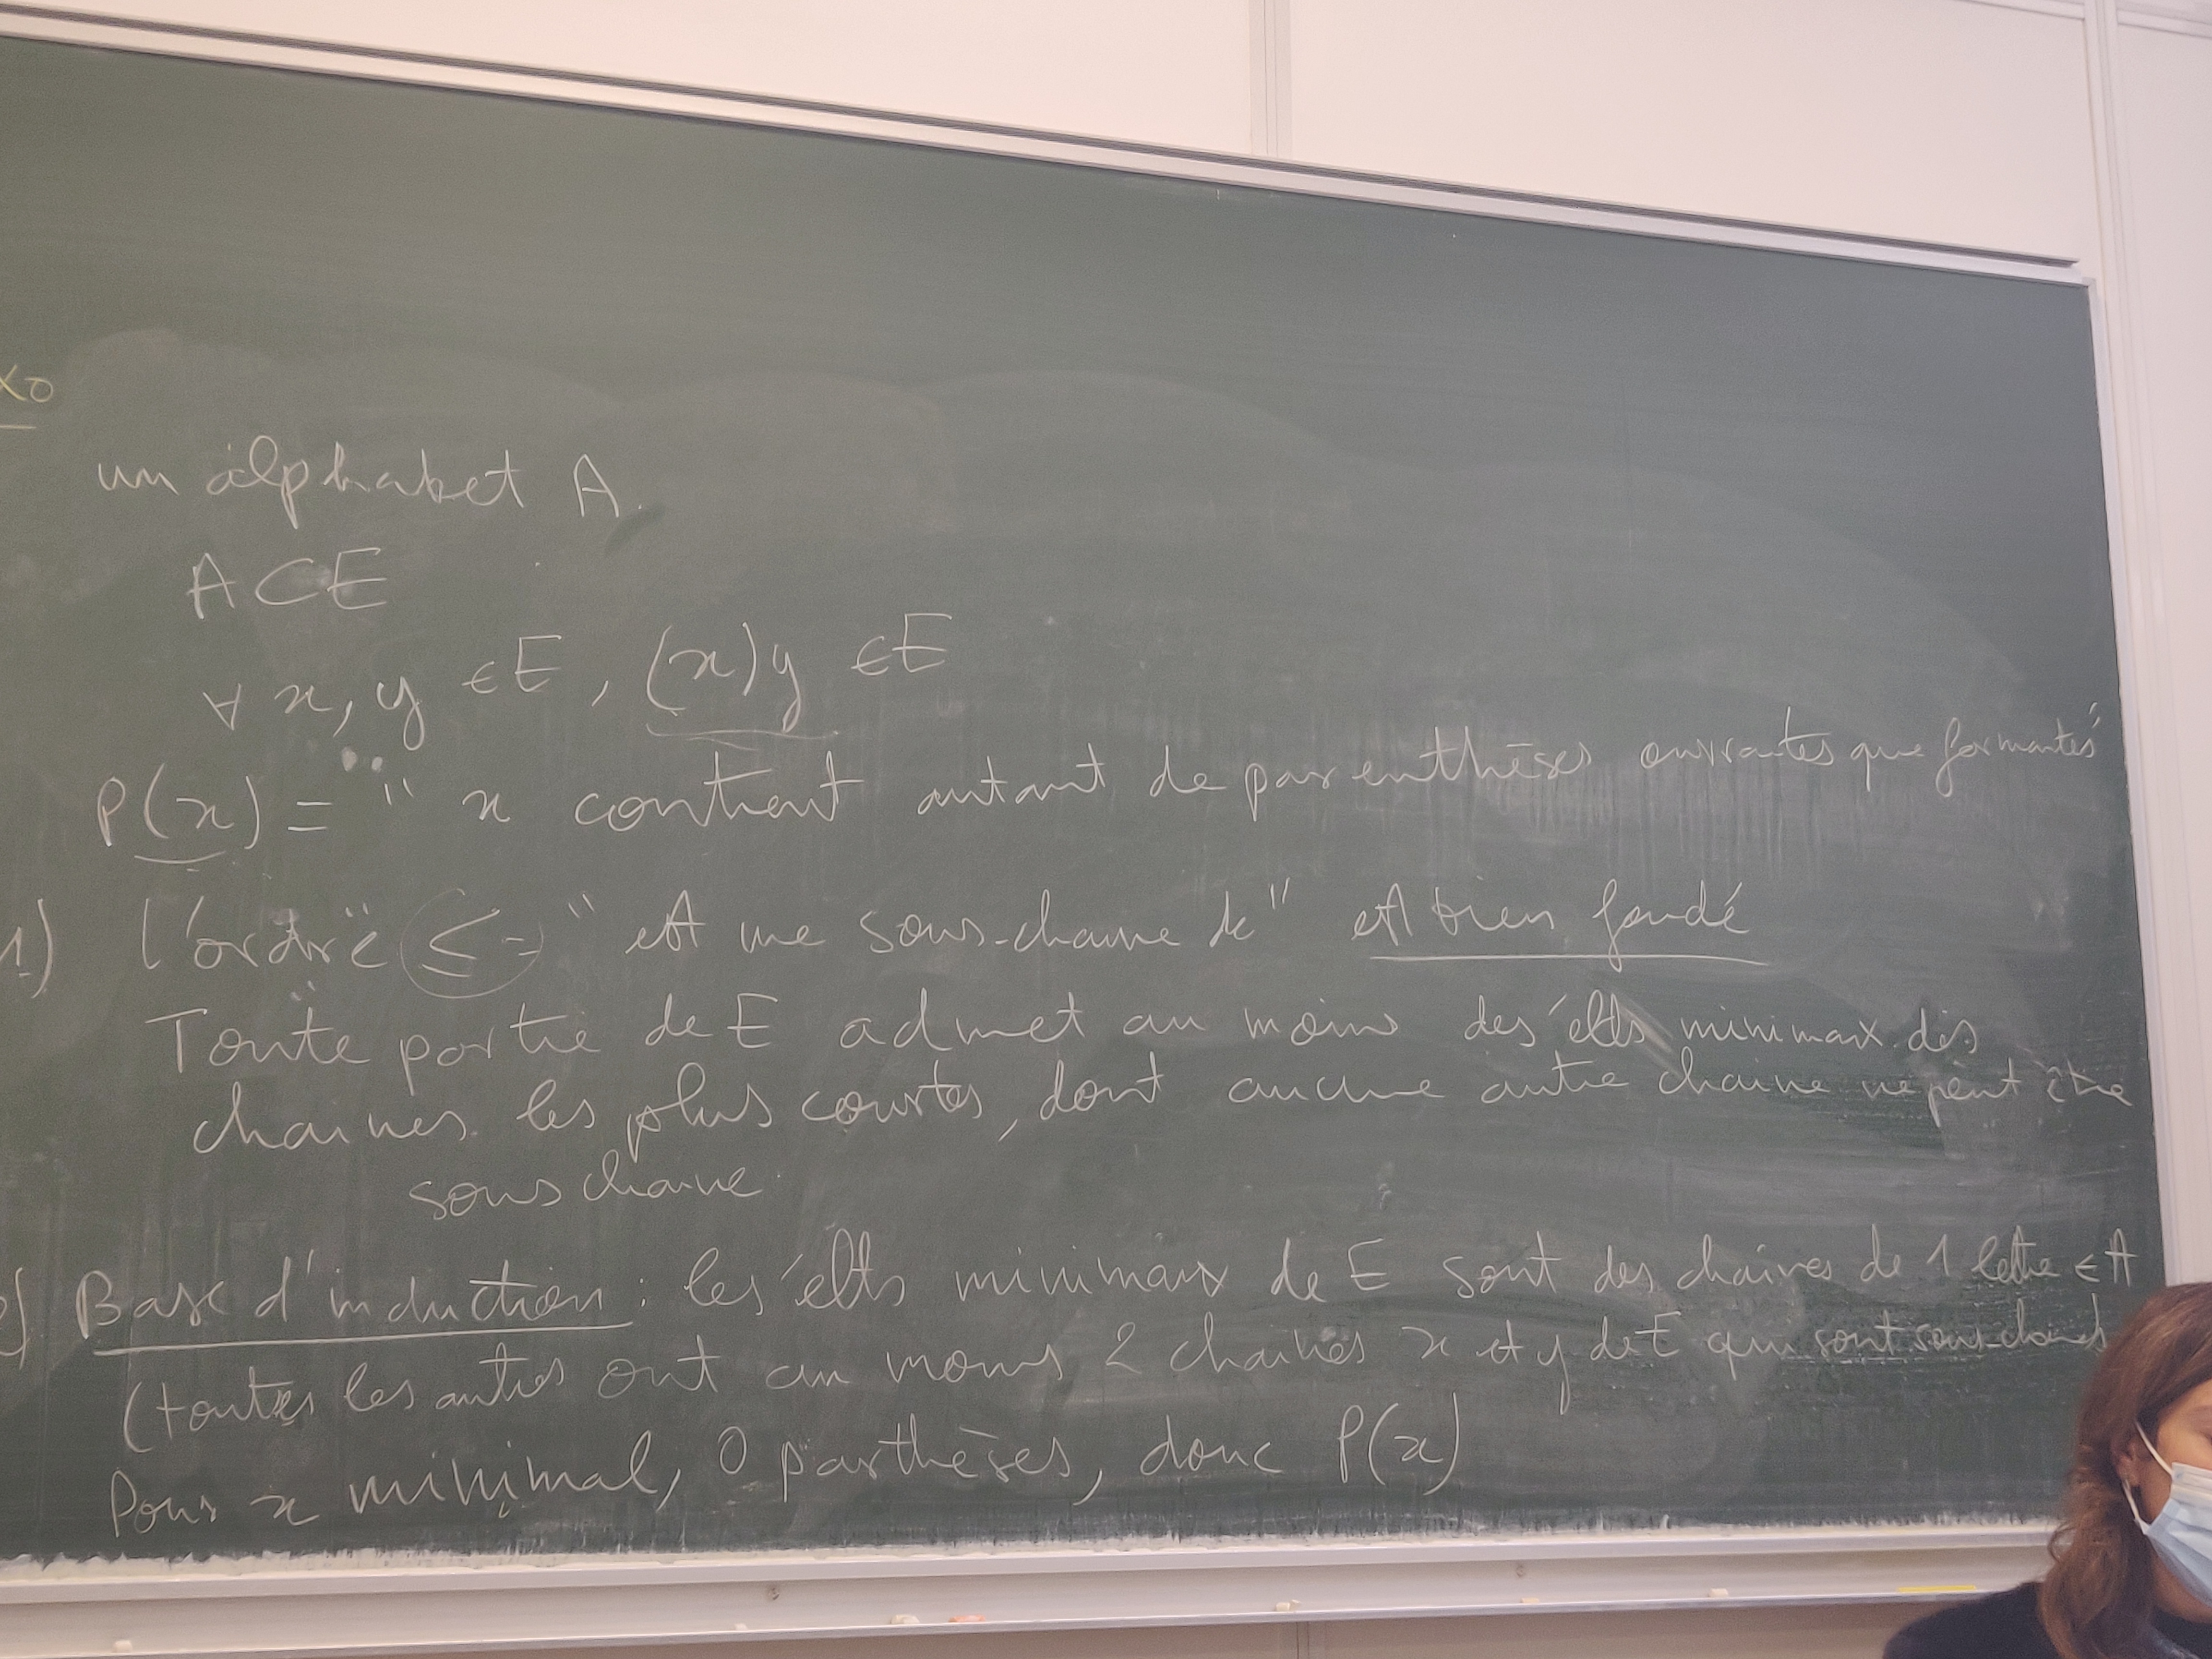 xo
un alphabet A.
A ⊂ E
∀ x, y ∈ E, (x)y ∈ E
P(x) = " x contient autant de parenthèses ouvrantes que fermantes"
1) l'ordre ≤ = " est une sous-chaine de" est bien fondé
Toute partie de E admet au moins des élts minimaux des
chaines les plus courtes, dont aucune autre chaine ne peut être
sous chaine.
Base d'induction : les élts minimaux de E sont des chaines de 1 lettre ∈ A
(toutes les autres ont au moins 2 chaines x et y de E qui sont sous-chaines
Pour x minimal, 0 parthèses, donc P(x)